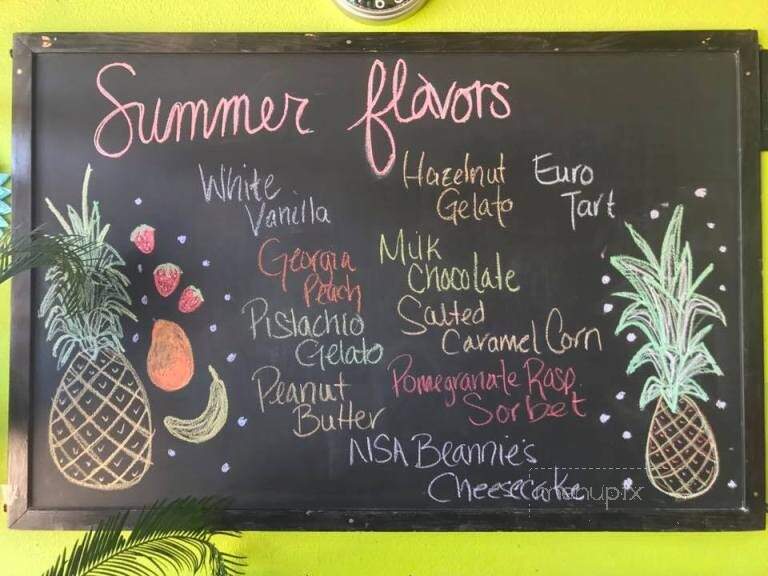 Summer flavors
White
Vanilla
Georgia
Peach
Pistachio
Gelato
Peanut
Butter
Hazelnut
Gelato
Milk
Chocolate
Salted
Caramel Corn
Pomegranate Rasp.
Sorbet
Euro
Tart
NSA Beannie's
Cheesecake
menupix